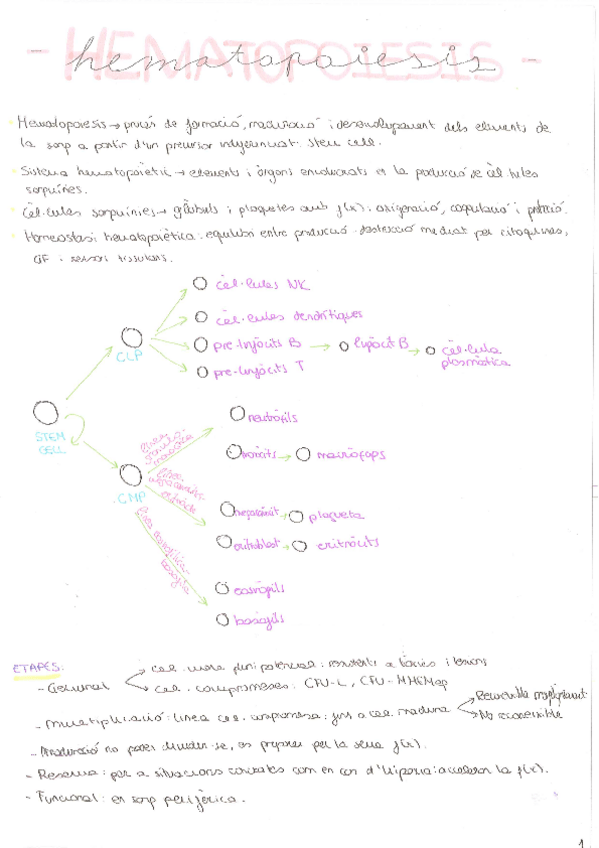 - HEMATOPOIESIS -
hematopoiesis
Hematopoiesis → procés de formació, maduració i desenvolupament dels elements de
la sang a partir d'un precursor indiferenciat: stem cell.
Sistema hematopoiètic → elements i òrgans involucrats en la producció de cèl·lules
sanguínies.
Cèl·lules sanguínies → glòbuls i plaquetes amb f(x): oxigenació, coagulació i protecció.
Homeòstasi hematopoiètica: equilibri entre producció-destrucció mediat per citoquines,
GF i sensors tissulars.
cèl·lules NK
cèl·lules dendrítiques
CLP
pre-limfòcits B → limfòcit B → cèl·lula
plasmàtica
pre-limfòcits T
STEM
CELL
neutròfils
línea
granulo-
monocítica
monòcits → macròfags
CMP
línea
megacariocític-
eritroide
megacariòcit → plaqueta
eritroblast → eritròcits
línea eosinofílica-
basofília
eosinòfils
basòfils
ETAPES:
- Germinal
cèl. mare pluripotencial: resistents a tòxics i lesions
cèl. compromeses: CFU-L, CFU-MHEMap
- Multiplicació: línea cèl. compromesa: fins a cèl. madura
Reversible
No reversible
- Maduració no poden dividir-se, es preparen per la seva f(x).
- Reserva: per a situacions concretes com en cas d'hipòxia: acceleren la f(x).
- Funcional: en sang perifèrica.
1